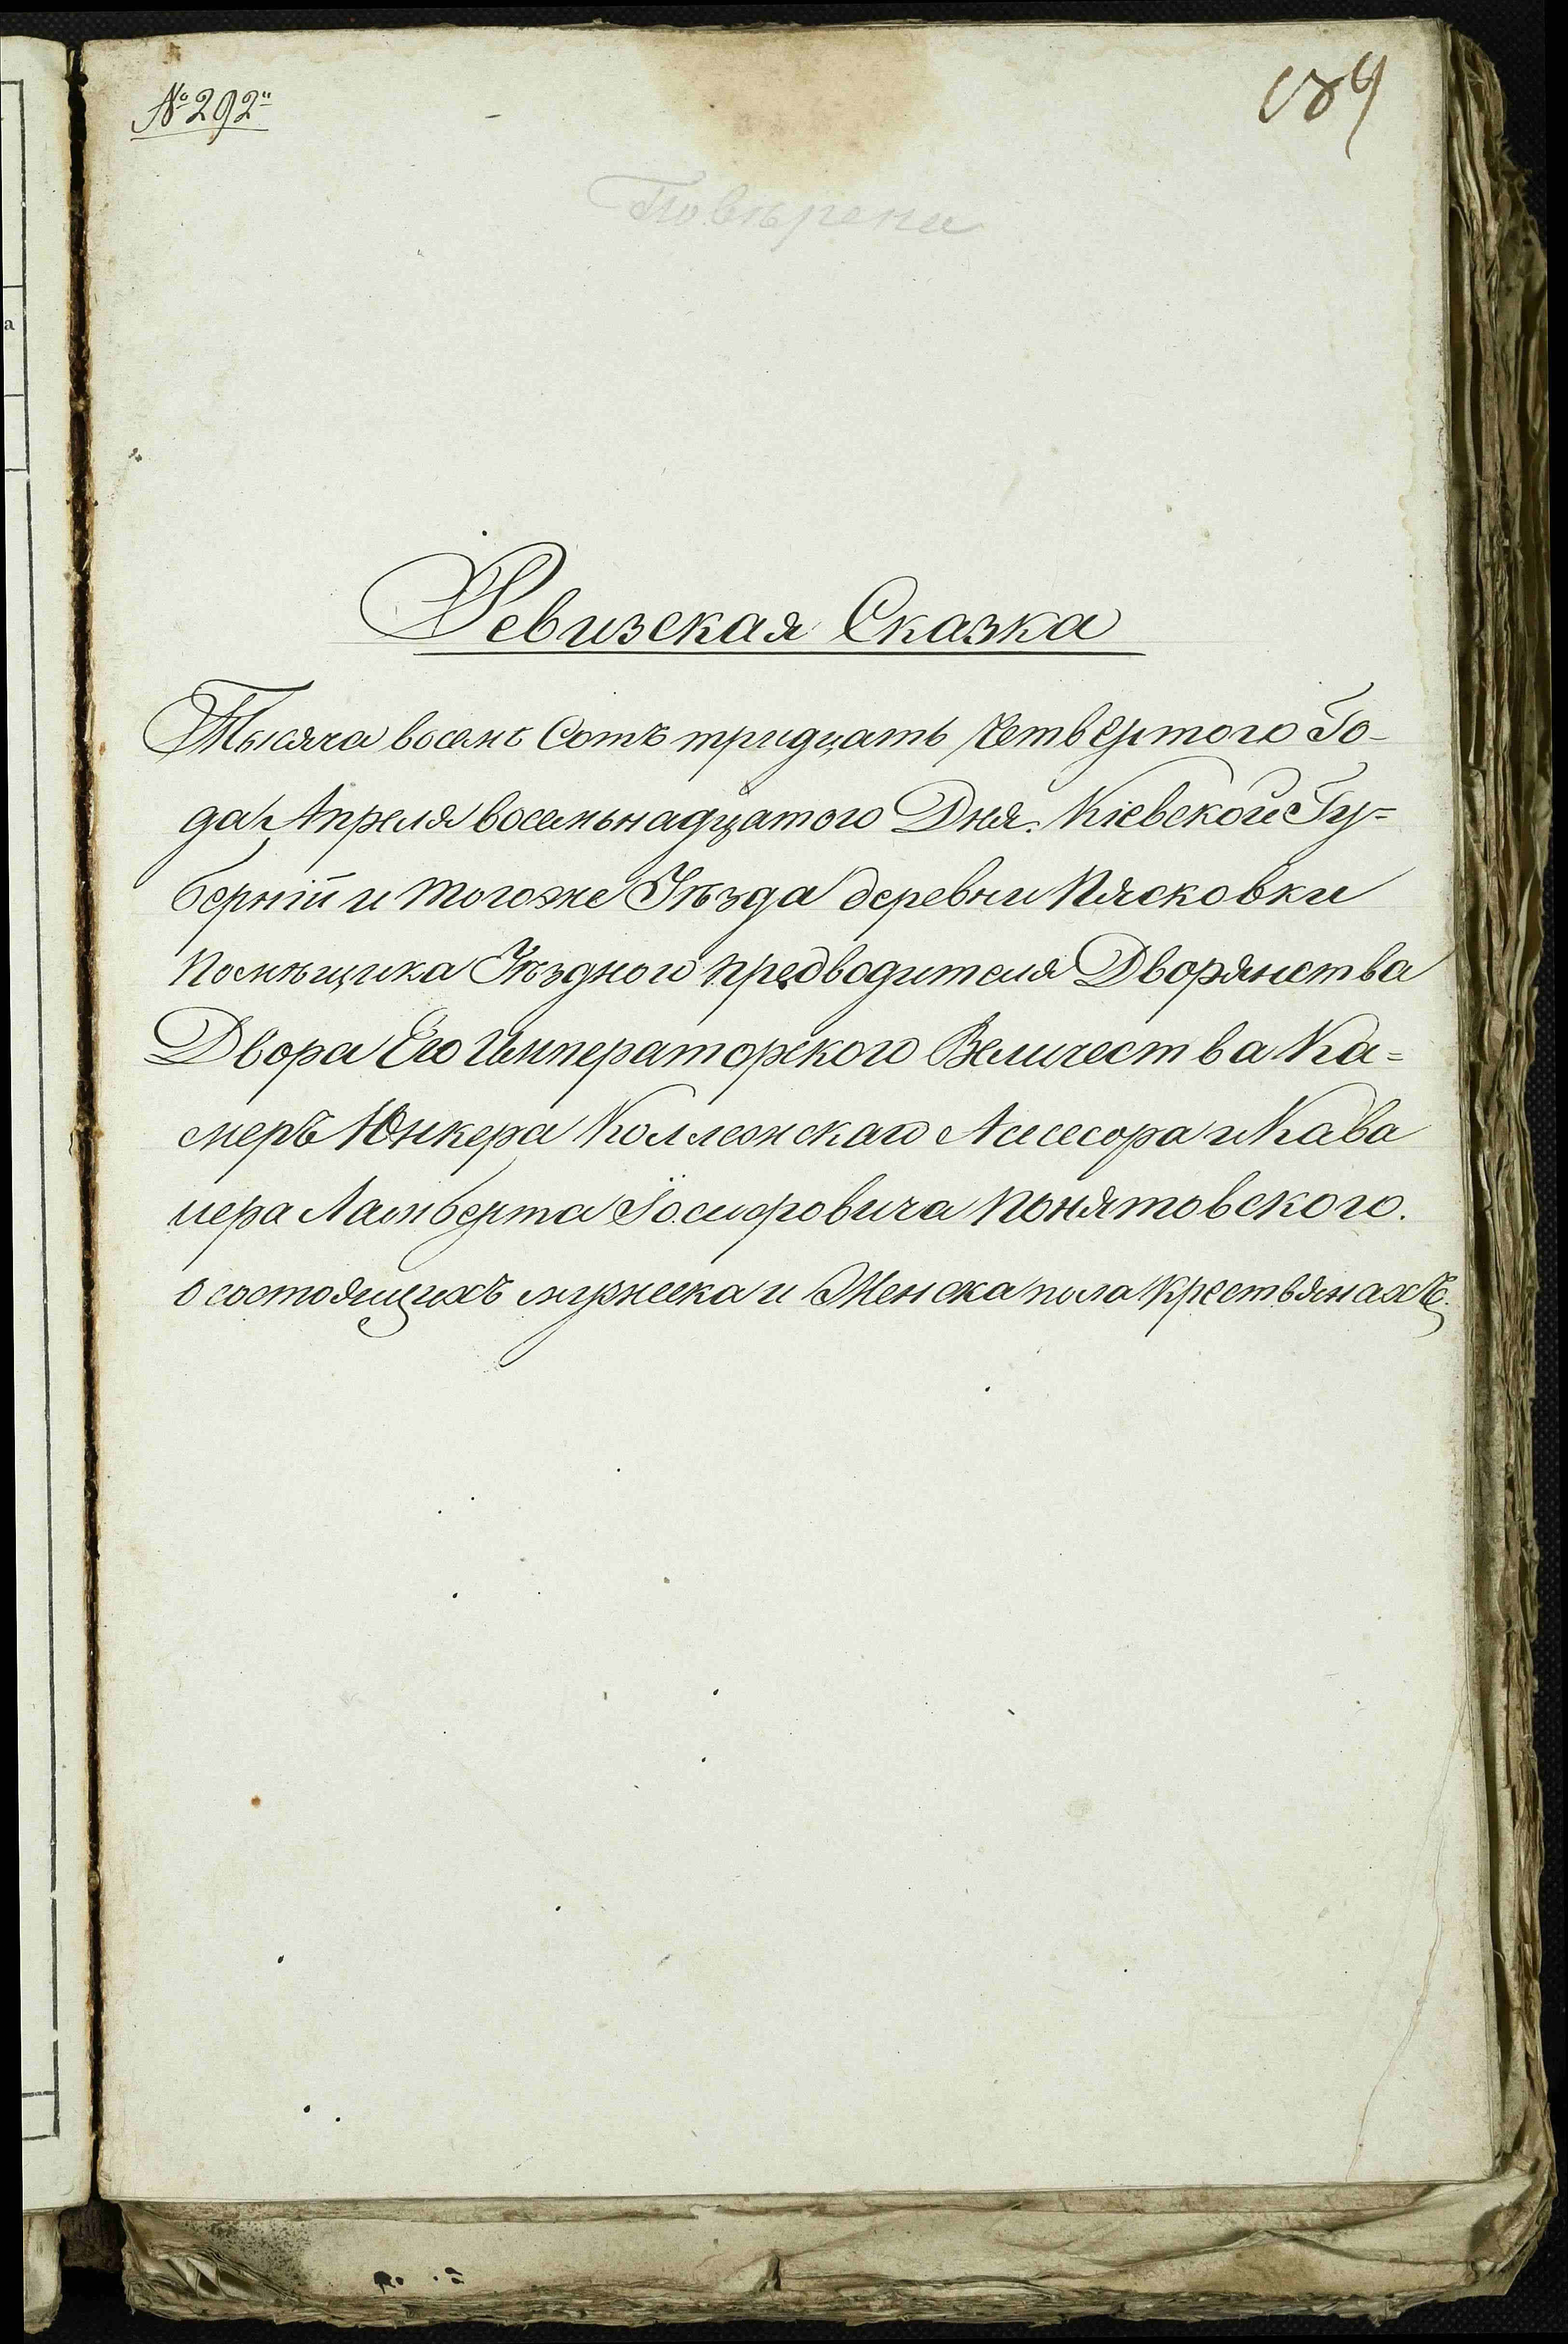 № 292"
Повѣрены
Ревизская Сказка
Тысяча восемь Сотъ тридцать Четвертого Го-
да Апреля восемьнадцатого Дня. Кіевской Гу=
берніи и тогоже Уѣзда деревни Плясковки
Помѣщика Уѣздного предводителя Дворянства
Двора Его Императорского Величества Ка=
меръ Юнкера Коллежскаго Асессора и Кава
лера Ламберта Іосифовича Понятовского.
о состоящихъ мужеска и Женска пола Крестьянахъ.